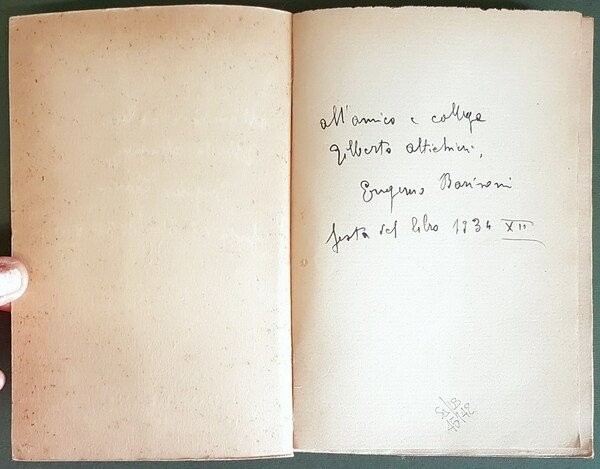 all'amico e collega
Gilberto Altichieri,
Eugenio Barisoni
festa del libro 1934 XII